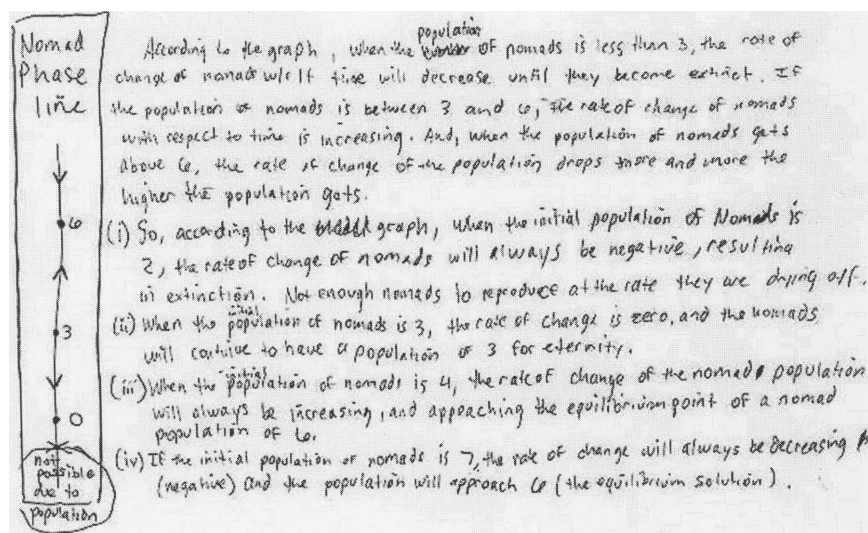 Nomad
Phase
line
6
3
0
not
possible
due to
population
population
According to the graph, when the of nomads is less than 3, the rate of
change of nomads w/r/t time will decrease until they become extinct. If
the population of nomads is between 3 and 6, the rate of change of nomads
with respect to time is increasing. And, when the population of nomads gets
above 6, the rate of change of the population drops more and more the
higher the population gets.
(i) So, according to the graph, when the initial population of Nomads is
2, the rate of change of nomads will always be negative, resulting
in extinction. Not enough nomads to reproduce at the rate they are dying off.
initial
(ii) When the population of nomads is 3, the rate of change is zero, and the nomads
will continue to have a population of 3 for eternity.
initial
(iii) When the population of nomads is 4, the rate of change of the nomad population
will always be increasing, and approaching the equilibrium point of a nomad
population of 6.
(iv) If the initial population of nomads is 7, the rate of change will always be decreasing
(negative) and the population will approach 6 (the equilibrium solution).